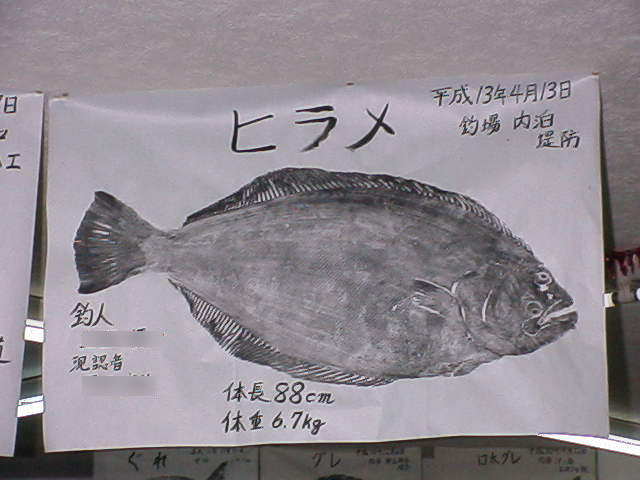 ヒラメ
平成13年4月13日
釣場 内泊
堤防
釣人
現認者
体長 88cm
体重 6.7kg
日
エ
ぐれ
グレ
口太グレ